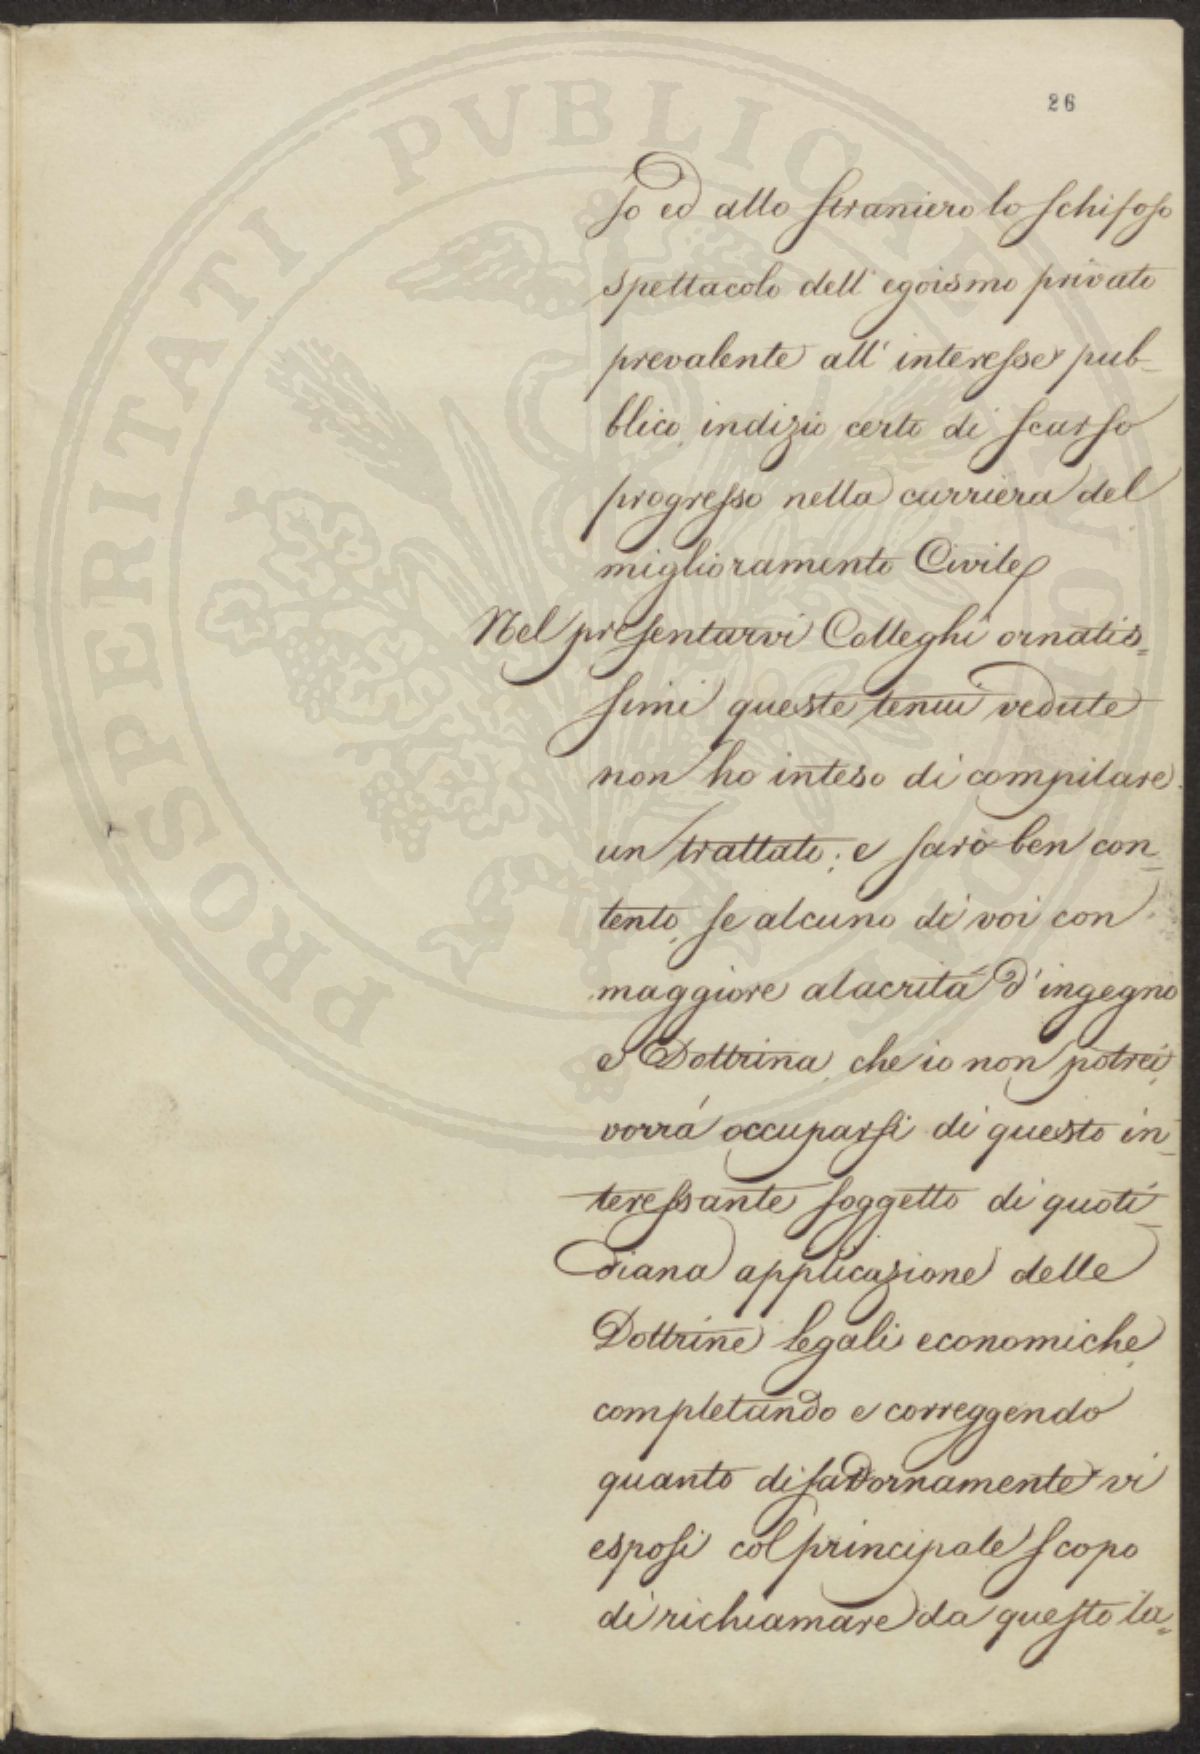 26
so ed allo straniero lo schifoso
spettacolo dell' egoismo privato
prevalente all' interesse pub-
blico, indizio certo di scarso
progresso nella carriera del
miglioramento Civile
Nel presentarvi Colleghi ornatis=
simi queste tenui vedute
non ho inteso di compilare
un trattato; e sarò ben con-
tento, se alcuno di voi con
maggiore alacritá d' ingegno
e Dottrina, che io non potrei,
vorrá occuparsi di questo in-
teressante soggetto di quoti-
diana applicazione delle
Dottrine legali economiche,
completando e correggendo
quanto disadornamente vi
esposi col principale scopo
di richiamare da questo la=
PROSPERITATI PUBLICAE